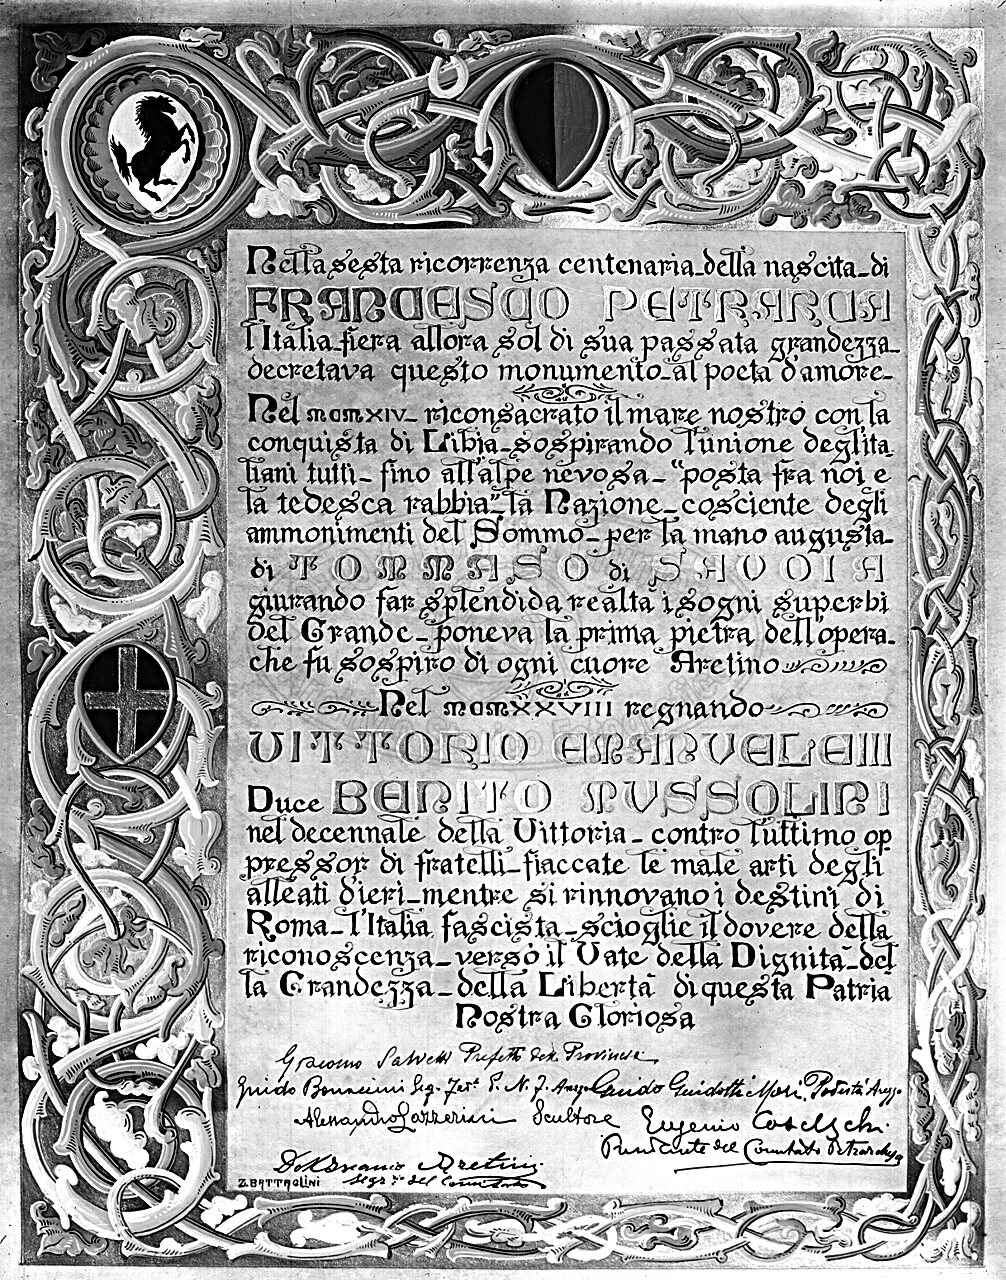 Nella sesta ricorrenza centenaria della nascita di
FRANCESCO PETRARCA
l'Italia fiera allora sol di sua passata grandezza
decretava questo monumento al poeta d'amore
Nel MCMXIV riconsacrato il mare nostro con la
conquista di Libia sospirando l'unione degl'ita
liani tutti fino all'alpe nevosa "posta fra noi e
la tedesca rabbia" la Nazione cosciente degli
ammonimenti del Sommo per la mano augusta
di TOMMASO di SAVOIA
giurando far splendida realtà i sogni superbi
del Grande poneva la prima pietra dell'opera
che fu sospiro di ogni cuore Aretino
Nel MCMXXVIII regnando
VITTORIO EMANUELE III
Duce BENITO MUSSOLINI
nel decennale della Vittoria contro l'ultimo op
pressor di fratelli fiaccate le male arti degli
alleati d'ieri mentre si rinnovano i destini di
Roma l'Italia fascista scioglie il dovere della
riconoscenza verso il Vate della Dignità del
la Grandezza della Libertà di questa Patria
Nostra Gloriosa
Giacomo Salvetti Prefetto della Provincia
Guido Bonaccini Seg. P. N. F. Guido Guidotti Mori, Podestà Arezzo
Alessandro Lazzerini Scultore Eugenio Coselschi
Presidente del Comitato Petrarchesco
Aretini
Z. BATTAGLINI del Comitato